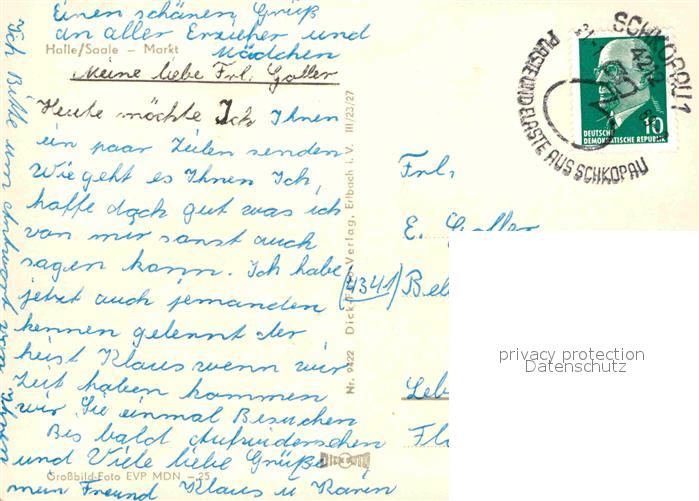 Einen schönen Grüß
an aller Erzieher und
Mädchen
Halle/Saale – Markt
Meine liebe Frl. Galler
Heute möchte Ich Ihnen
ein paar Zeilen senden
Wie geht es Ihnen Ich,
hoffe doch gut was ich
von mir sonst auch
sagen kann. Ich habe
jetzt auch jemanden
kennen gelennt der
heist Klaus wenn wir
Zeit haben kommen
wir Sie einmal Besuchen
Bis bald Aufwiderschen
und Viele liebe Grüße
mein Freund Klaus u Karen
Großbild-Foto EVP MDN –.25
Ich Bitte um Antwort von Ihnen
Nr. 9422 Dick-Foto-Verlag, Erlbach i. V. III/23/27
DICK FOTO
SCHKOPAU 1
PLASTE UND ELASTE AUS SCHKOPAU
DEUTSCHE
DEMOKRATISCHE REPUBLIK
10
Frl.
E. Galler
(4341) Bel
Leb
Fl
privacy protection
Datenschutz